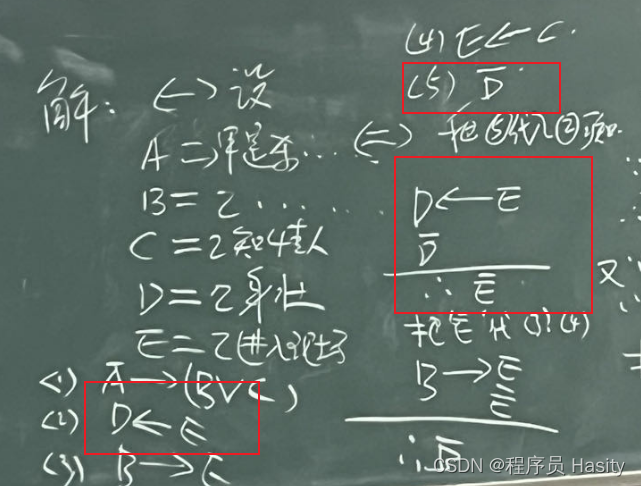 解: (一) 设
A = 甲是杀...
B = 乙......
C = 乙知情人
D = 乙身壮
E = 乙进入现场
(1) A → (B∨C)
(2) D ← E
(3) B → E
(4) E ← C.
(5) D̅
(二) 把⑤代入②知
D ← E
D̅
∴ E̅
把E̅代(3)(4)
B → E
E̅
∴ B̅
又
CSDN @程序员 Hasity